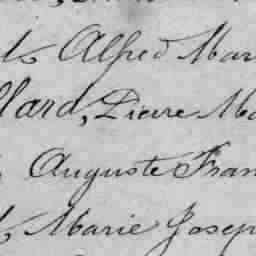 Alfred Mar
llard, Pierre Ma
Auguste Fran
Marie Josep